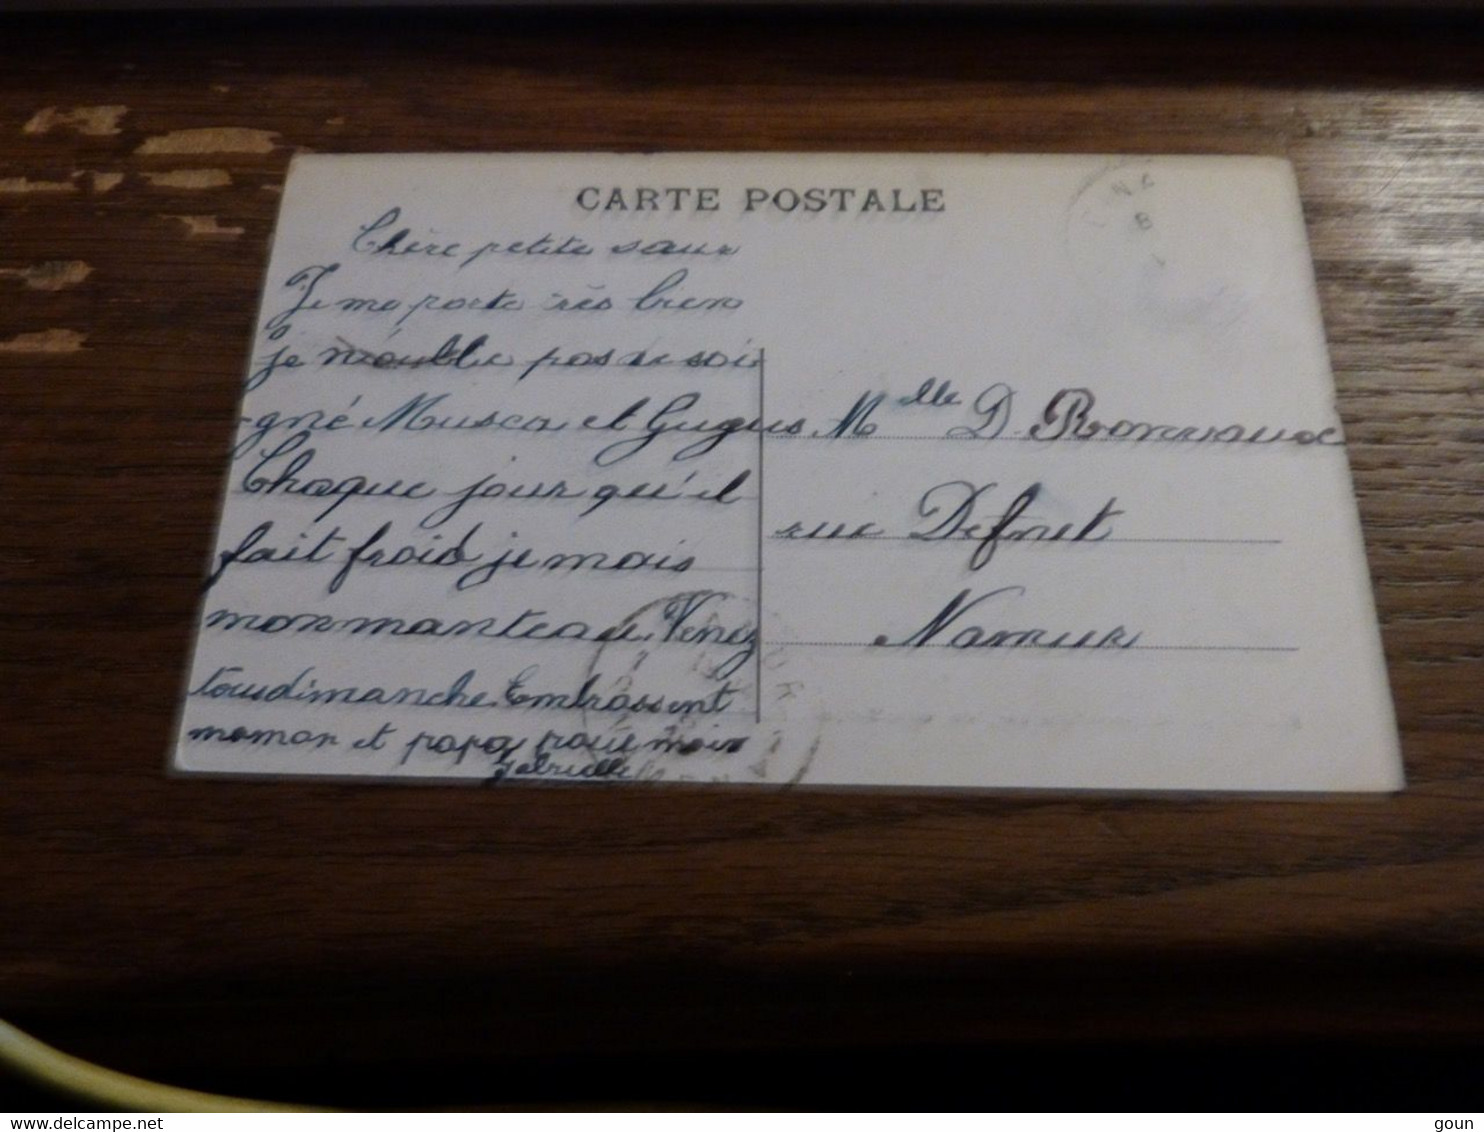 CARTE POSTALE
Chère petite sœur
Je me porte très bien
je n'oublie pas de soi
-gné Musca et Gugus
Chaque jour qu'il
fait froid je mais
mon manteau. Venez
tous dimanche. Embrassent
maman et papa pour moi
Gabrielle
Mlle D Ronvaux
rue Defnet
Namur
www.delcampe.net
goun